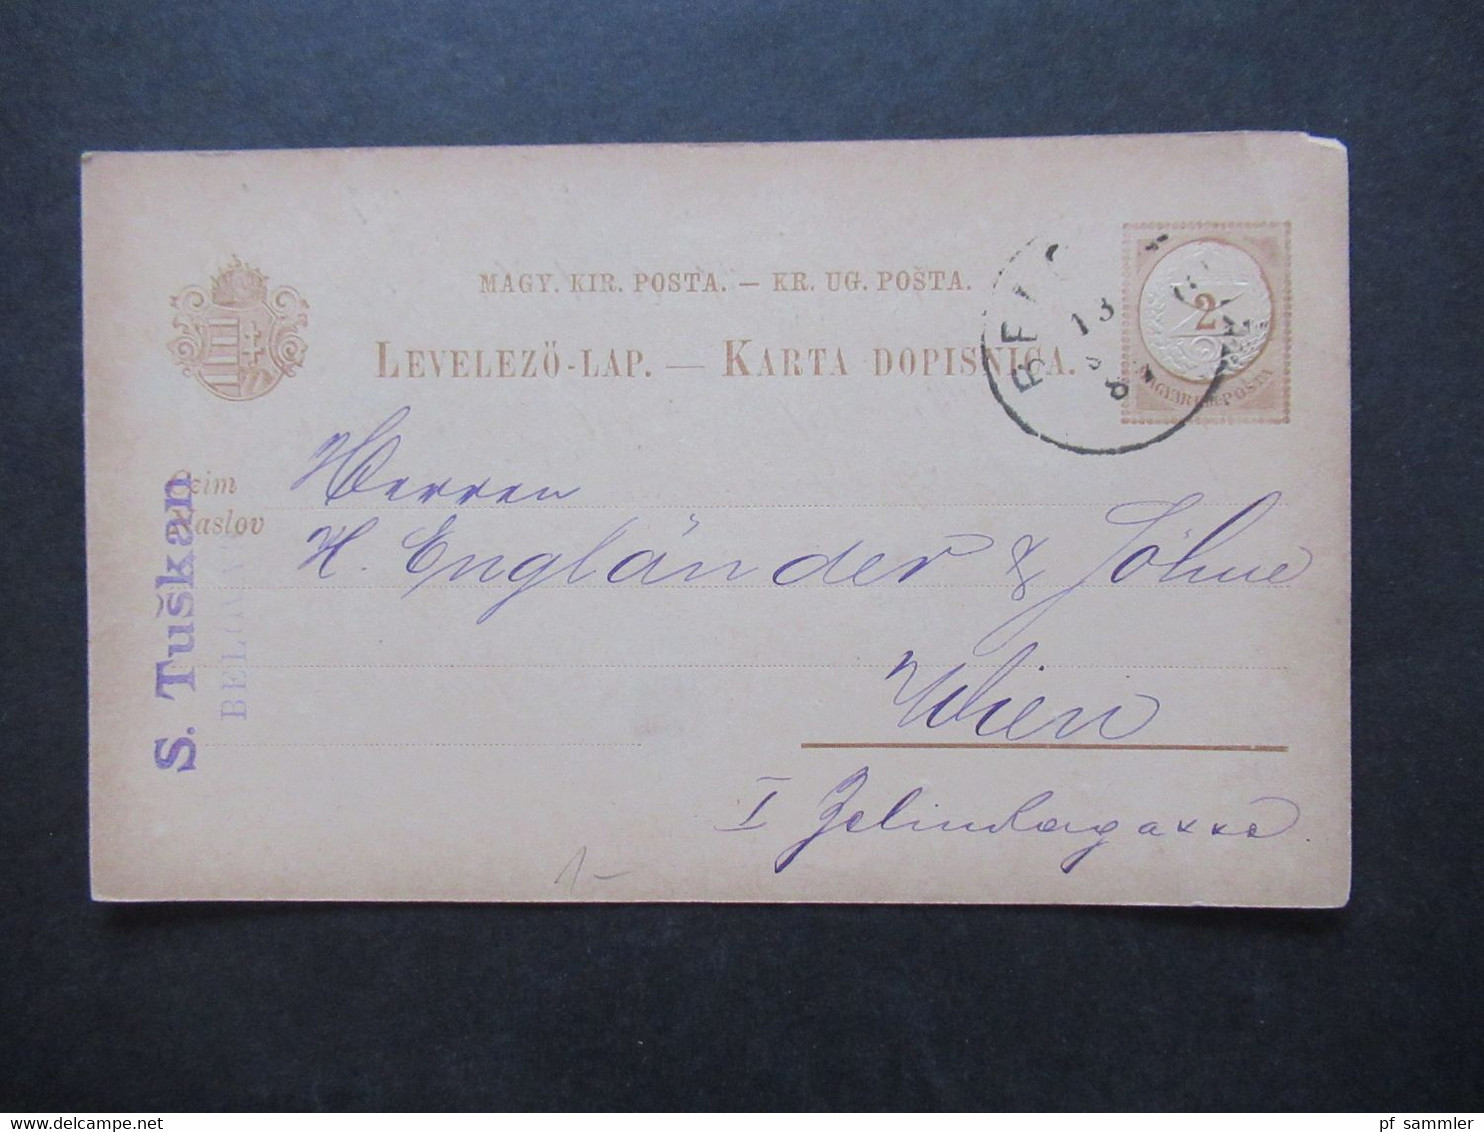 MAGY. KIR. POSTA. — KR. UG. POŠTA.
LEVELEZÖ-LAP. — KARTA DOPISNICA.
2
MAGYAR KIR. POSTA
13
Czim
Naslov
S. Tuškan
Herren
H. Engländer & Söhne
Wien
I Zelinkagasse
1-
pf sammler